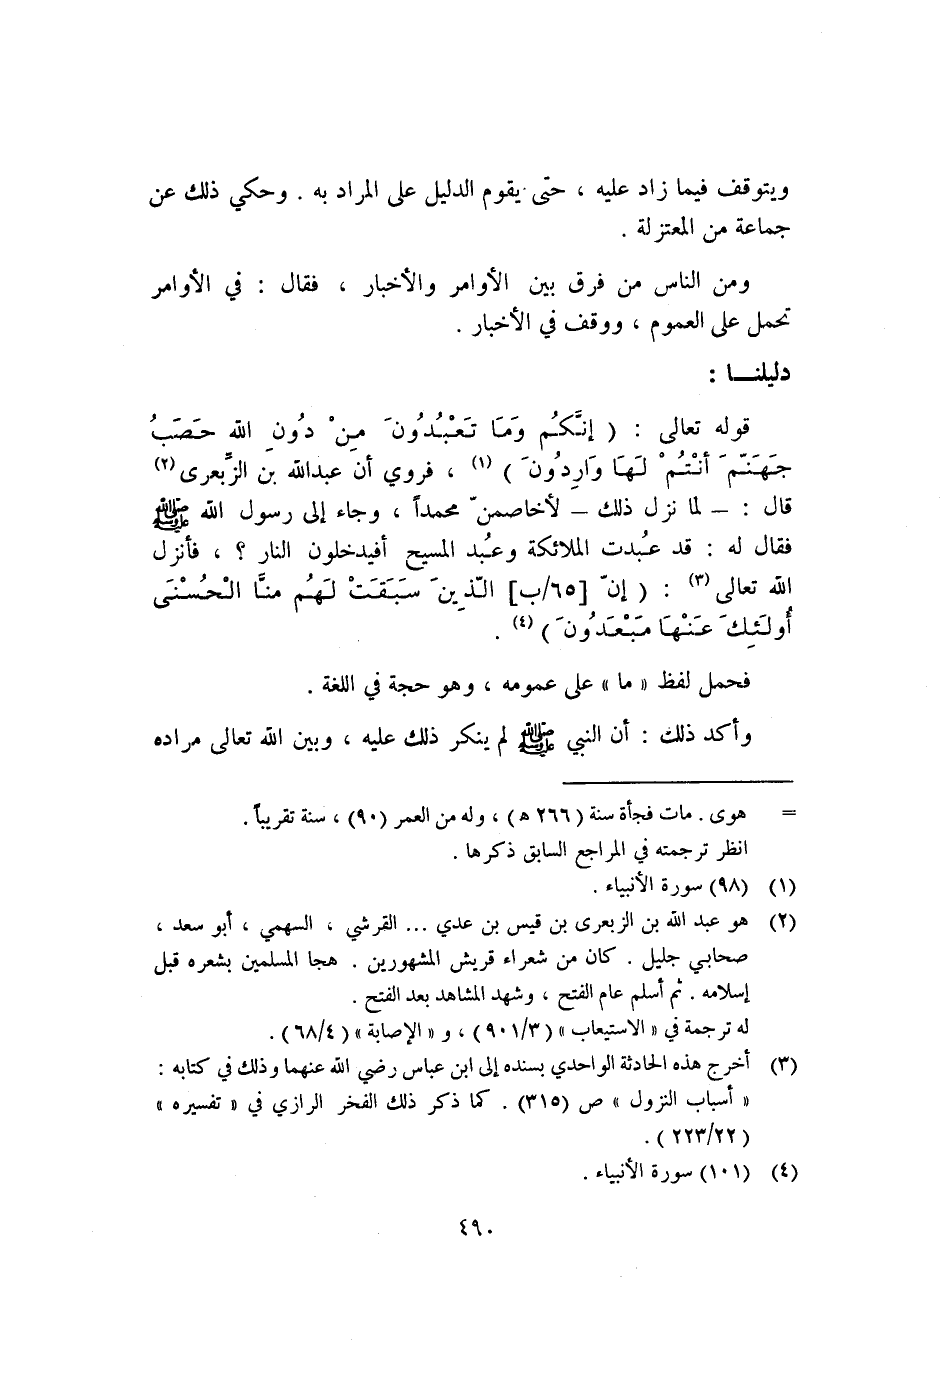 ويتوقف فيما زاد عليه ، حتى يقوم الدليل على المراد به . وحكي ذلك عن
جماعة من المعتزلة .
ومن الناس من فرق بين الأوامر والأخبار ، فقال : في الأوامر
تحمل على العموم ، ووقف في الأخبار .
دليلنـــا :
قوله تعالى : ( إِنَّكُم وَمَا تَعْبُدُونَ مِنْ دُونِ الله حَصَبُ
جَهَنَّمَ أَنْتُمْ لَهَا وَارِدُونَ ) (١) ، فروي أن عبدالله بن الزَّبعرى(٢)
قال : – لما نزل ذلك – لأخاصمنّ محمداً ، وجاء إلى رسول الله ﷺ
فقال له : قد عُبدت الملائكة وعُبد المسيح أفيدخلون النار ؟ ، فأنزل
الله تعالى (٣) : ( إنّ [٦٥/ب] الَّذِينَ سَبَقَتْ لَهُم مِنَّا الْحُسْنَى
أُولَئِكَ عَنْهَا مُبْعَدُونَ ) (٤) .
فحمل لفظ « ما » على عمومه ، وهو حجة في اللغة .
وأكد ذلك : أن النبي ﷺ لم ينكر ذلك عليه ، وبين الله تعالى مراده
= هوى . مات فجأة سنة ( ٢٦٦ ه ) ، وله من العمر (٩٠) ، سنة تقريباً .
انظر ترجمته في المراجع السابق ذكرها .
(١) (٩٨) سورة الأنبياء .
(٢) هو عبد الله بن الزبعرى بن قيس بن عدي ... القرشي ، السهمي ، أبو سعد ،
صحابي جليل . كان من شعراء قريش المشهورين . هجا المسلمين بشعره قبل
إسلامه . ثم أسلم عام الفتح ، وشهد المشاهد بعد الفتح .
له ترجمة في « الاستيعاب » ( ٩٠١/٣ ) ، و « الإصابة » ( ٦٨/٤ ) .
(٣) أخرج هذه الحادثة الواحدي بسنده إلى ابن عباس رضي الله عنهما وذلك في كتابه :
« أسباب النزول » ص (٣١٥) . كما ذكر ذلك الفخر الرازي في « تفسيره »
( ٢٢٣/٢٢ ) .
(٤) (١٠١) سورة الأنبياء .
٤٩٠